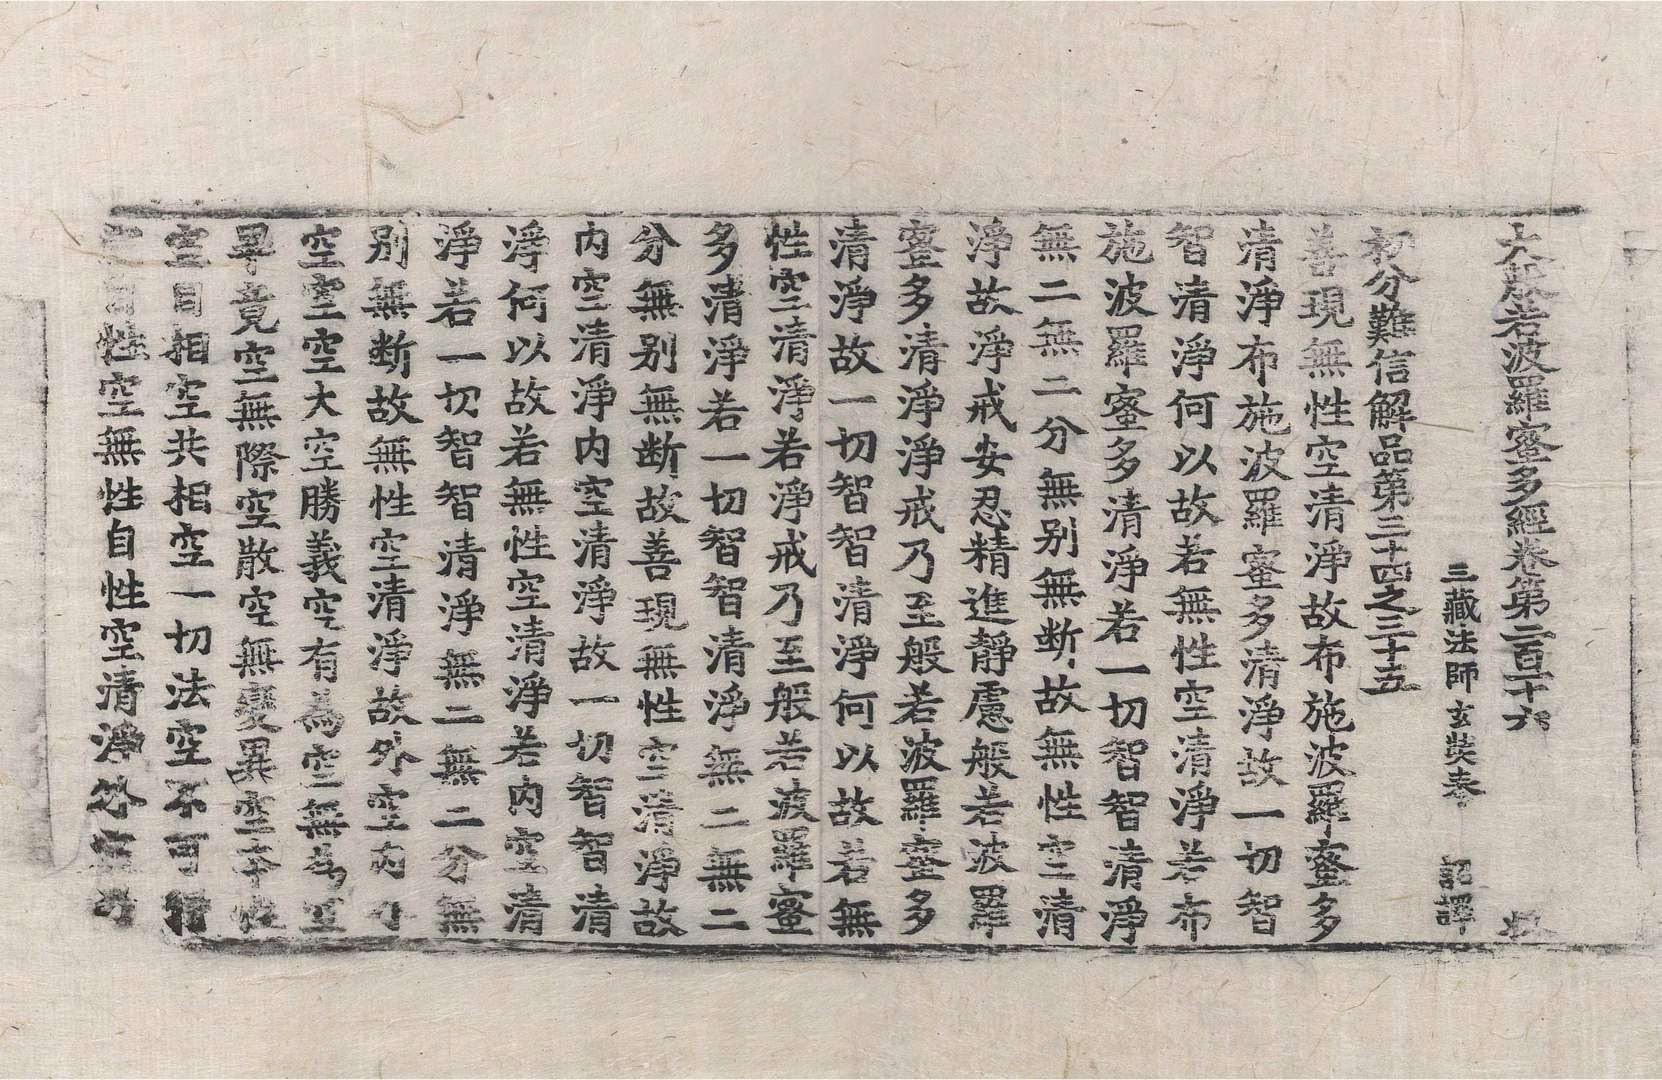 大般若波羅蜜多經卷第二百一十六 收
三藏法師玄奘奉 詔譯
初分難信解品第三十四之三十五
善現無性空清淨故布施波羅蜜多
清淨布施波羅蜜多清淨故一切智
智清淨何以故若無性空清淨若布
施波羅蜜多清淨若一切智智清淨
無二無二分無别無断故無性空清
淨故淨戒安忍精進靜慮般若波羅
蜜多清淨淨戒乃至般若波羅蜜多
清淨故一切智智清淨何以故若無
性空清淨若淨戒乃至般若波羅蜜
多清淨若一切智智清淨無二無二
分無别無断故善現無性空清淨故
内空清淨内空清淨故一切智智清
淨何以故若無性空清淨若内空清
淨若一切智智清淨無二無二分無
别無断故無性空清淨故外空内外
空空空大空勝義空有為空無為空
畢竟空無際空散空無變異空本性
空自相空共相空一切法空不可得
空自性空無性自性空清淨外空乃